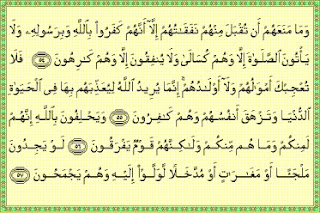 وَمَا مَنَعَهُمْ أَن تُقْبَلَ مِنْهُمْ نَفَقَٰتُهُمْ إِلَّآ أَنَّهُمْ كَفَرُوا۟ بِٱللَّهِ وَبِرَسُولِهِۦ وَلَا
يَأْتُونَ ٱلصَّلَوٰةَ إِلَّا وَهُمْ كُسَالَىٰ وَلَا يُنفِقُونَ إِلَّا وَهُمْ كَٰرِهُونَ ٥٤ فَلَا
تُعْجِبْكَ أَمْوَٰلُهُمْ وَلَآ أَوْلَٰدُهُمْ ۚ إِنَّمَا يُرِيدُ ٱللَّهُ لِيُعَذِّبَهُم بِهَا فِى ٱلْحَيَوٰةِ
ٱلدُّنْيَا وَتَزْهَقَ أَنفُسُهُمْ وَهُمْ كَٰفِرُونَ ٥٥ وَيَحْلِفُونَ بِٱللَّهِ إِنَّهُمْ
لَمِنكُمْ وَمَا هُم مِّنكُمْ وَلَٰكِنَّهُمْ قَوْمٌ يَفْرَقُونَ ٥٦ لَوْ يَجِدُونَ
مَلْجَـًٔا أَوْ مَغَٰرَٰتٍ أَوْ مُدَّخَلًا لَّوَلَّوْا۟ إِلَيْهِ وَهُمْ يَجْمَحُونَ ٥٧